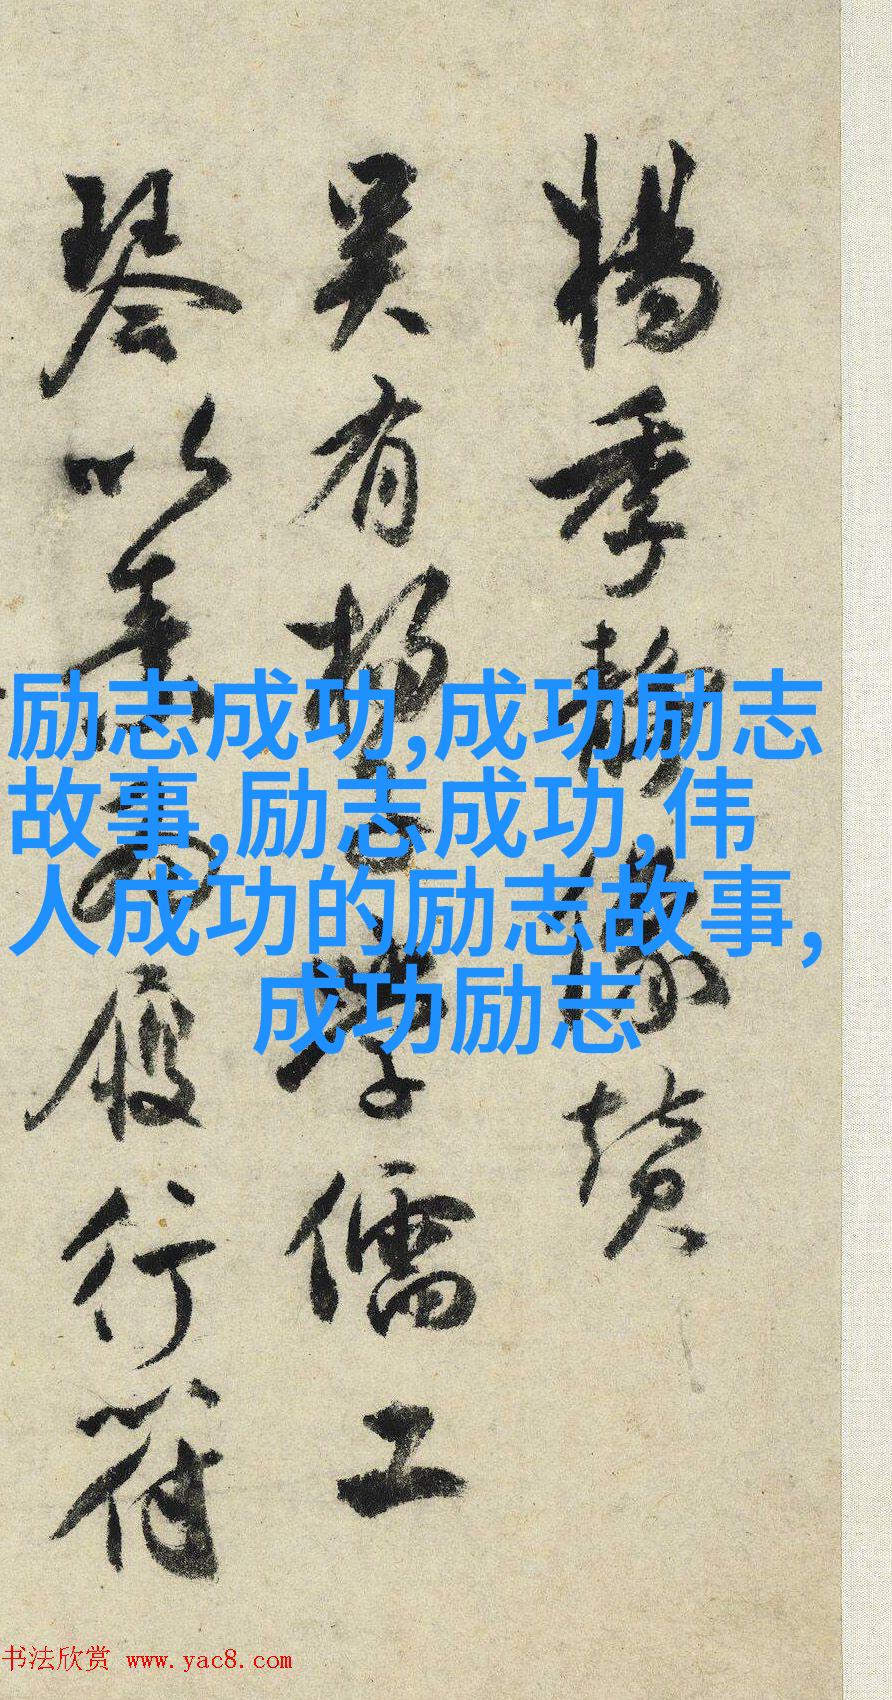 楊季靜像贊
吳有楊子學儒工
琴以為履行符
励志成功,成功励志
故事,励志成功,伟
人成功的励志故事,
成功励志
书法欣赏 www.yac8.com